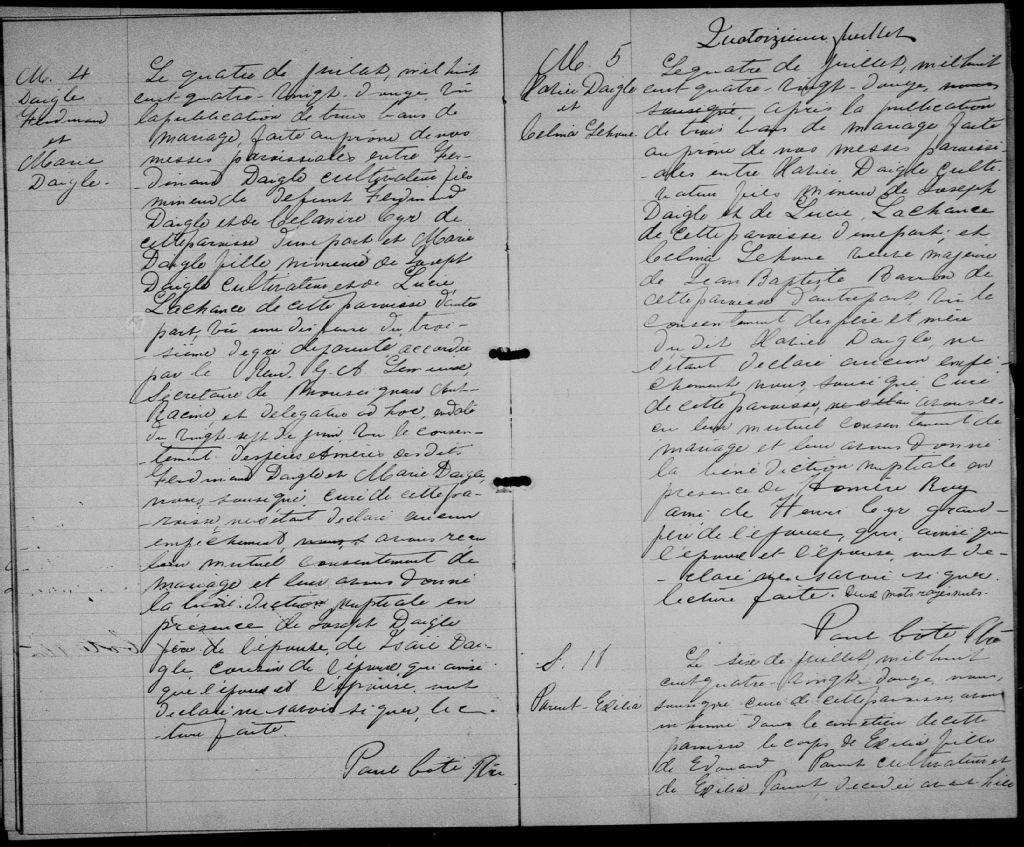 M. 4
Daigle
Ferdinand
et
Marie
Daigle.
Le quatre de Juillet, mil huit
cent quatre-vingt-douze, vu
la publication de trois bans de
mariage, faite au prône de nos
messes paroissiales entre Fer-
-dinand Daigle cultivateur fils
mineur de defunt Ferdinand
Daigle et de Celanire Cyr de
cette paroisse d'une part et Marie
Daigle fille mineure de Joseph
Daigle cultivateur et de Lucie
Lachance de cette paroisse d'autre
part, vu une dispense du troi-
-sième degré de parenté accordée
par le Revd. G. A.
Secrétaire de Monseigneur Ant.
Racine et délégateur ad hoc, en date
du vingt-sept de juin, vu le consen-
-tement des pères et mères des dits
Ferdinand Daigle et Marie Daigle,
nous, sousigné, curé de cette pa-
-roisse, ne s'étant déclaré aucun
empêchement, nous, avons reçu
leur mutuel consentement de
mariage et leur avons donné
la béné-diction nuptiale en
présence de Joseph Daigle
père de l'épouse, de Isaïe Dai-
-gle, cousin de l'époux qui ainsi
que l'époux et l'épouse, ont
déclaré ne savoir signer, lec-
-ture faite.
Paul Coté Ptre
Quatorzieme Juillet
M. 5
Xavier Daigle
et
Celina
Le quatre de Juillet, mil huit
cent quatre-vingt-douze, nous
sousigné, après la publication
de trois bans de mariage faite
au prône de nos messes paroissi-
-ales entre Xavier Daigle culti-
-vateur fils mineur de Joseph
Daigle et de Lucie Lachance
de cette paroisse d'une part; et
Celina veuve majeure
de Jean Baptiste Barron de
cette paroisse d'autre part, vu le
consentement des père et mère
du dit Xavier Daigle, ne
s'étant déclaré aucun empê-
-chement, nous, sousigné, Curé
de cette paroisse, avons re-
-çu leur mutuel consentement de
mariage et leur avons donné
la bénédiction nuptiale en
présence de Homère Roy
ami de Henri Cyr grand-
-père de l'épouse, qui, ainsi que
l'époux et l'épouse, ont dé-
-claré ne savoir signer.
lecture faite. Deux mots rayés nuls.
Paul Coté Ptre
S. 11
Parent - Exilia
Le six de Juillet, mil huit
cent quatre-vingt-douze, nous,
sousigné curé de cette paroisse, avons
inhumé dans le cimetière de cette
paroisse le corps de Exilia fille
de Edouard Parent cultivateur et
de Exilia Parent, décédée avant hier